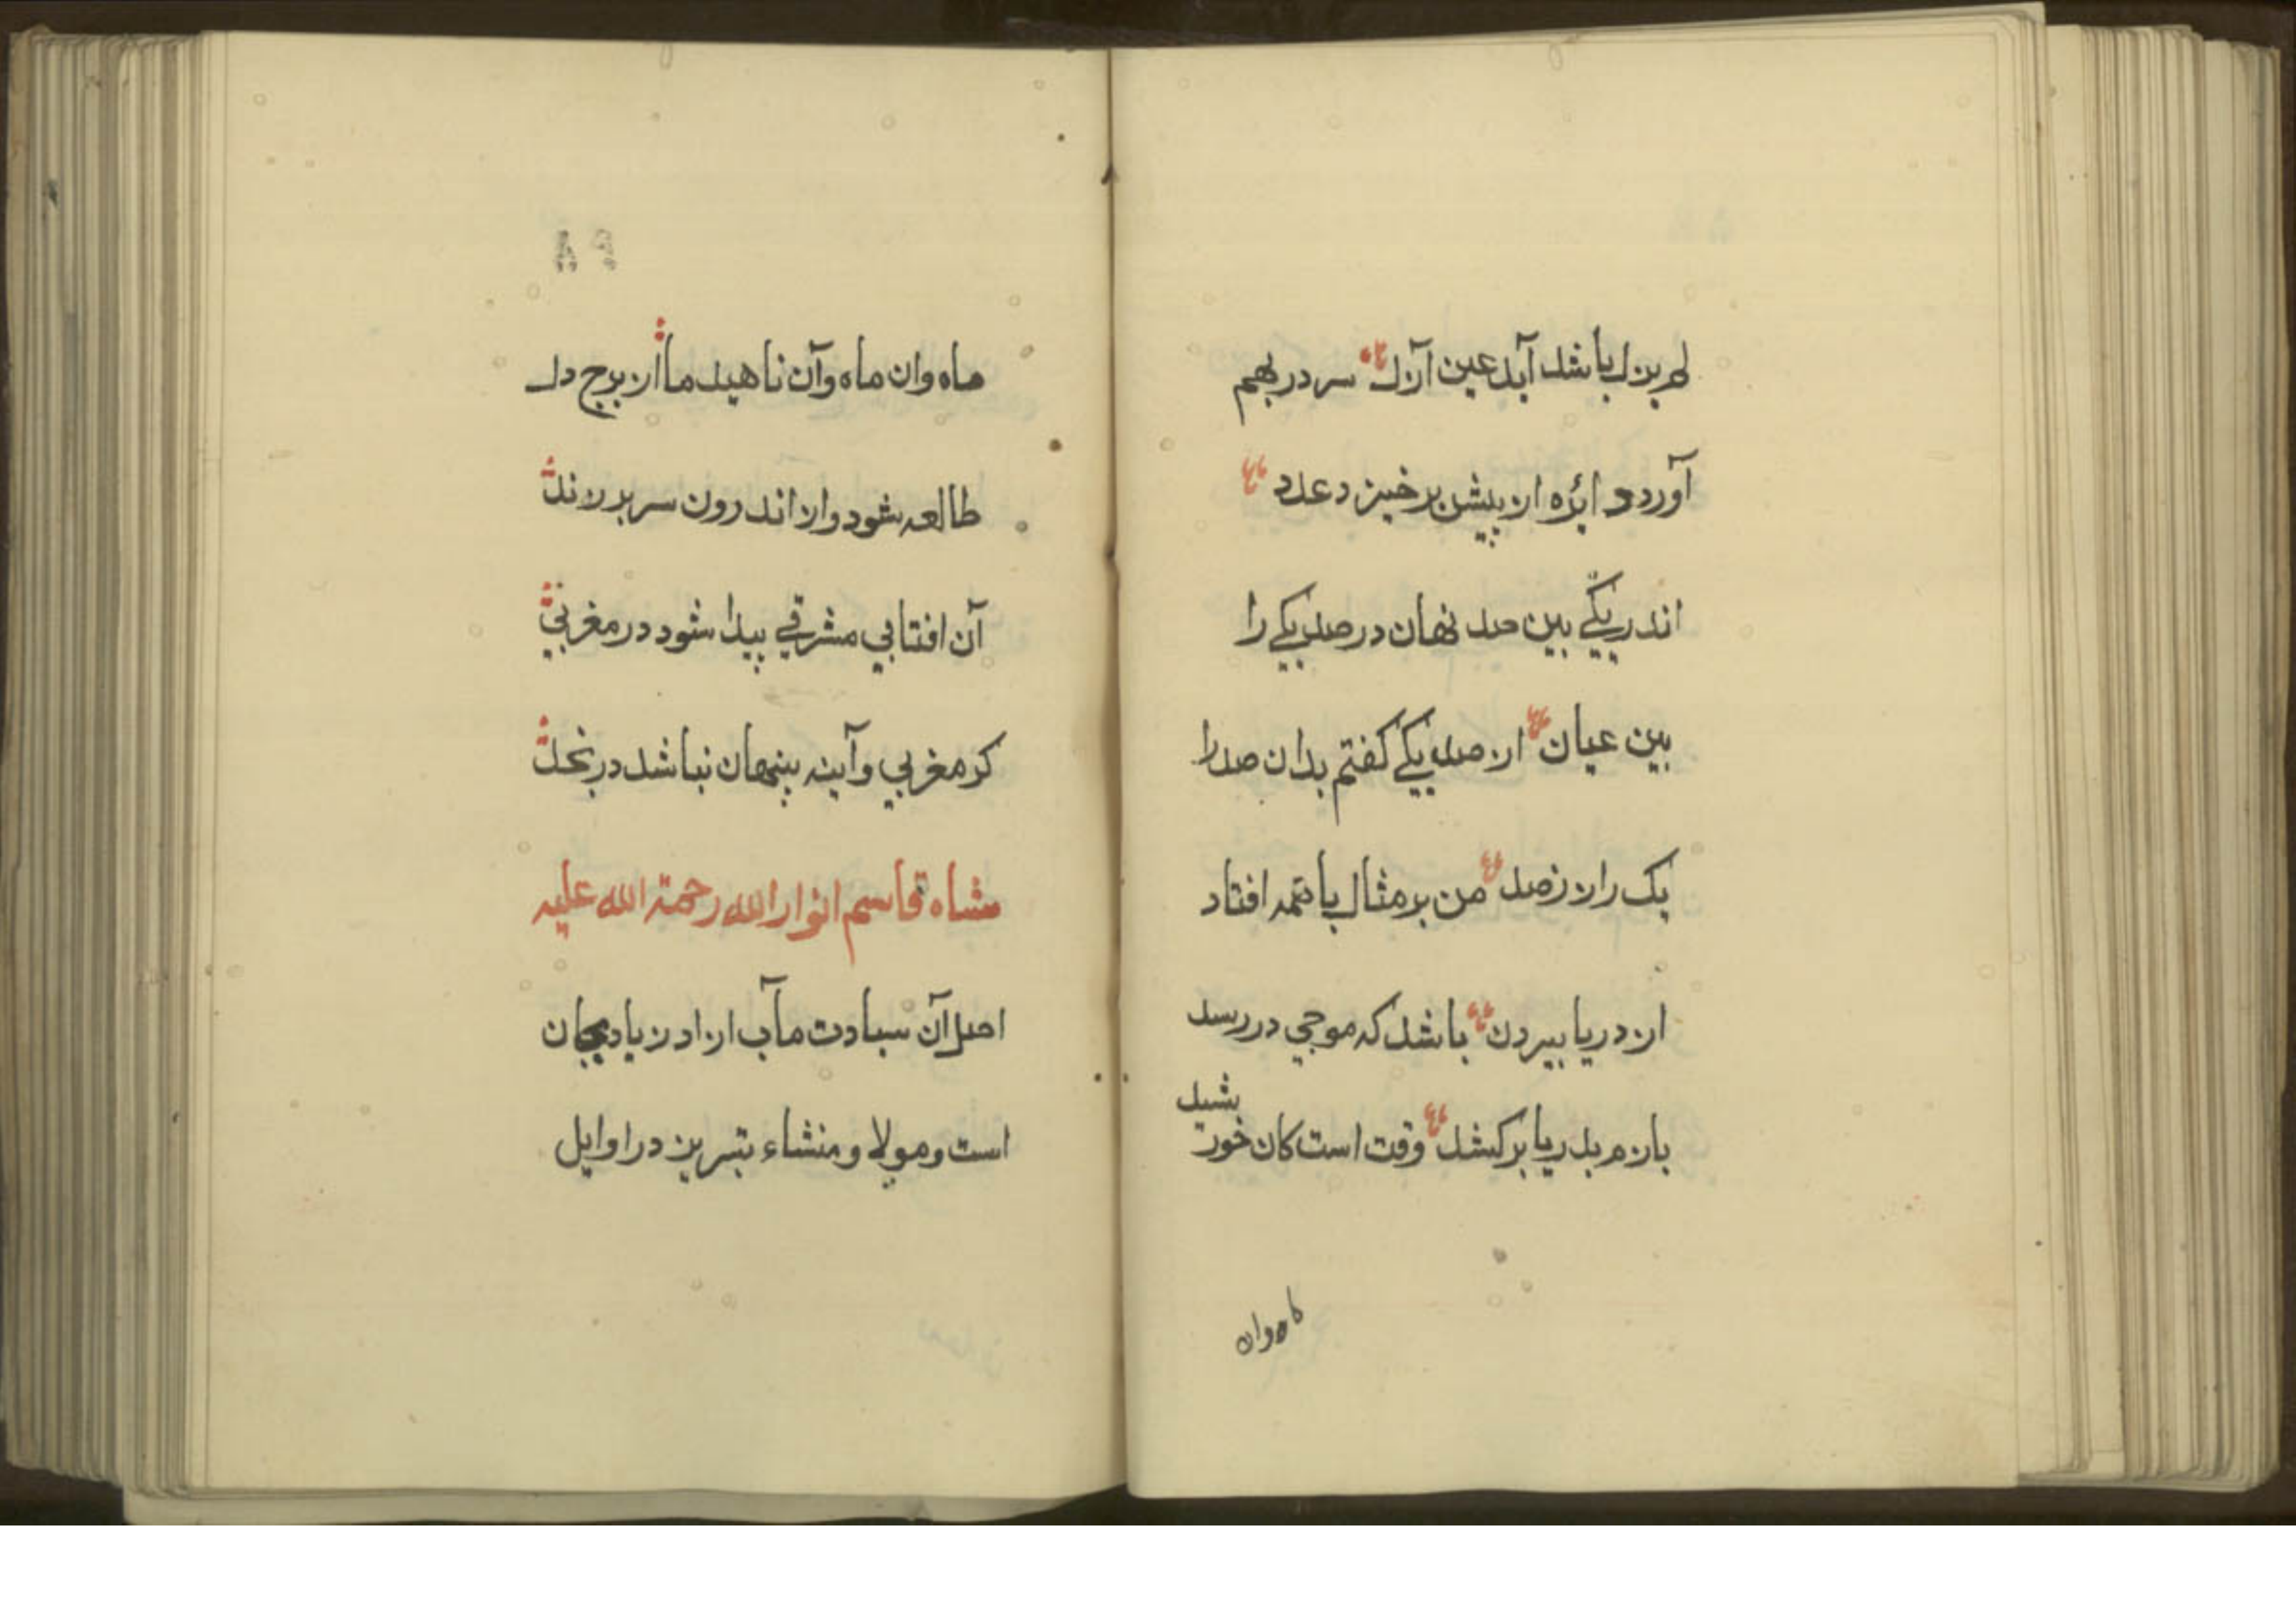 لم یزل باشد آید عین آزل سر در بهم
آورد و ایره از پیش برخیزد عدد
اندر یکے بین صد نهان در صد یکے را
بین عیان از صد یکے کفتم بدان صد را
یک راز ز صد من بر مثال یا همه افتاد
از دریا بیرون باشد که موجی در رسد
بازم بدریا برکشد وقت است کان خور
بشید
ماه وان
ماه وان ماه وآن ناهید ما از برج دل
طالعه شود واز اندرون سر بر زند
آن افتابي مشرقے پیدا شود در مغربي
کر مغربي وآینه پنهان نباشد در نخل
شاه قاسم انوار الله رحمة الله علیه
اصل آن سیادت مآب از ادز یادیجان
است ومولا ومنشاء تبریز در اوایل